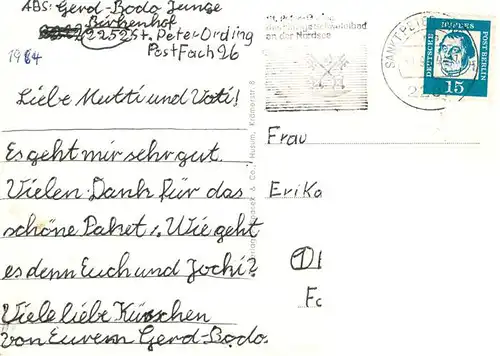 ABS: Gerd-Bodo Junge
Birkenhof
2252 St. Peter Ording
Postfach 26
1964
Liebe Mutti und Vati!
Es geht mir sehr gut.
Vielen Dank für das
schöne Paket. Wie geht
es denn Euch und Jochi?
Viele liebe Küsschen
von Eurem Gerd-Bodo.
an der Nordsee
SANKT PE
DEUTSCHE BUNDESPOST BERLIN
15
Frau
Erika